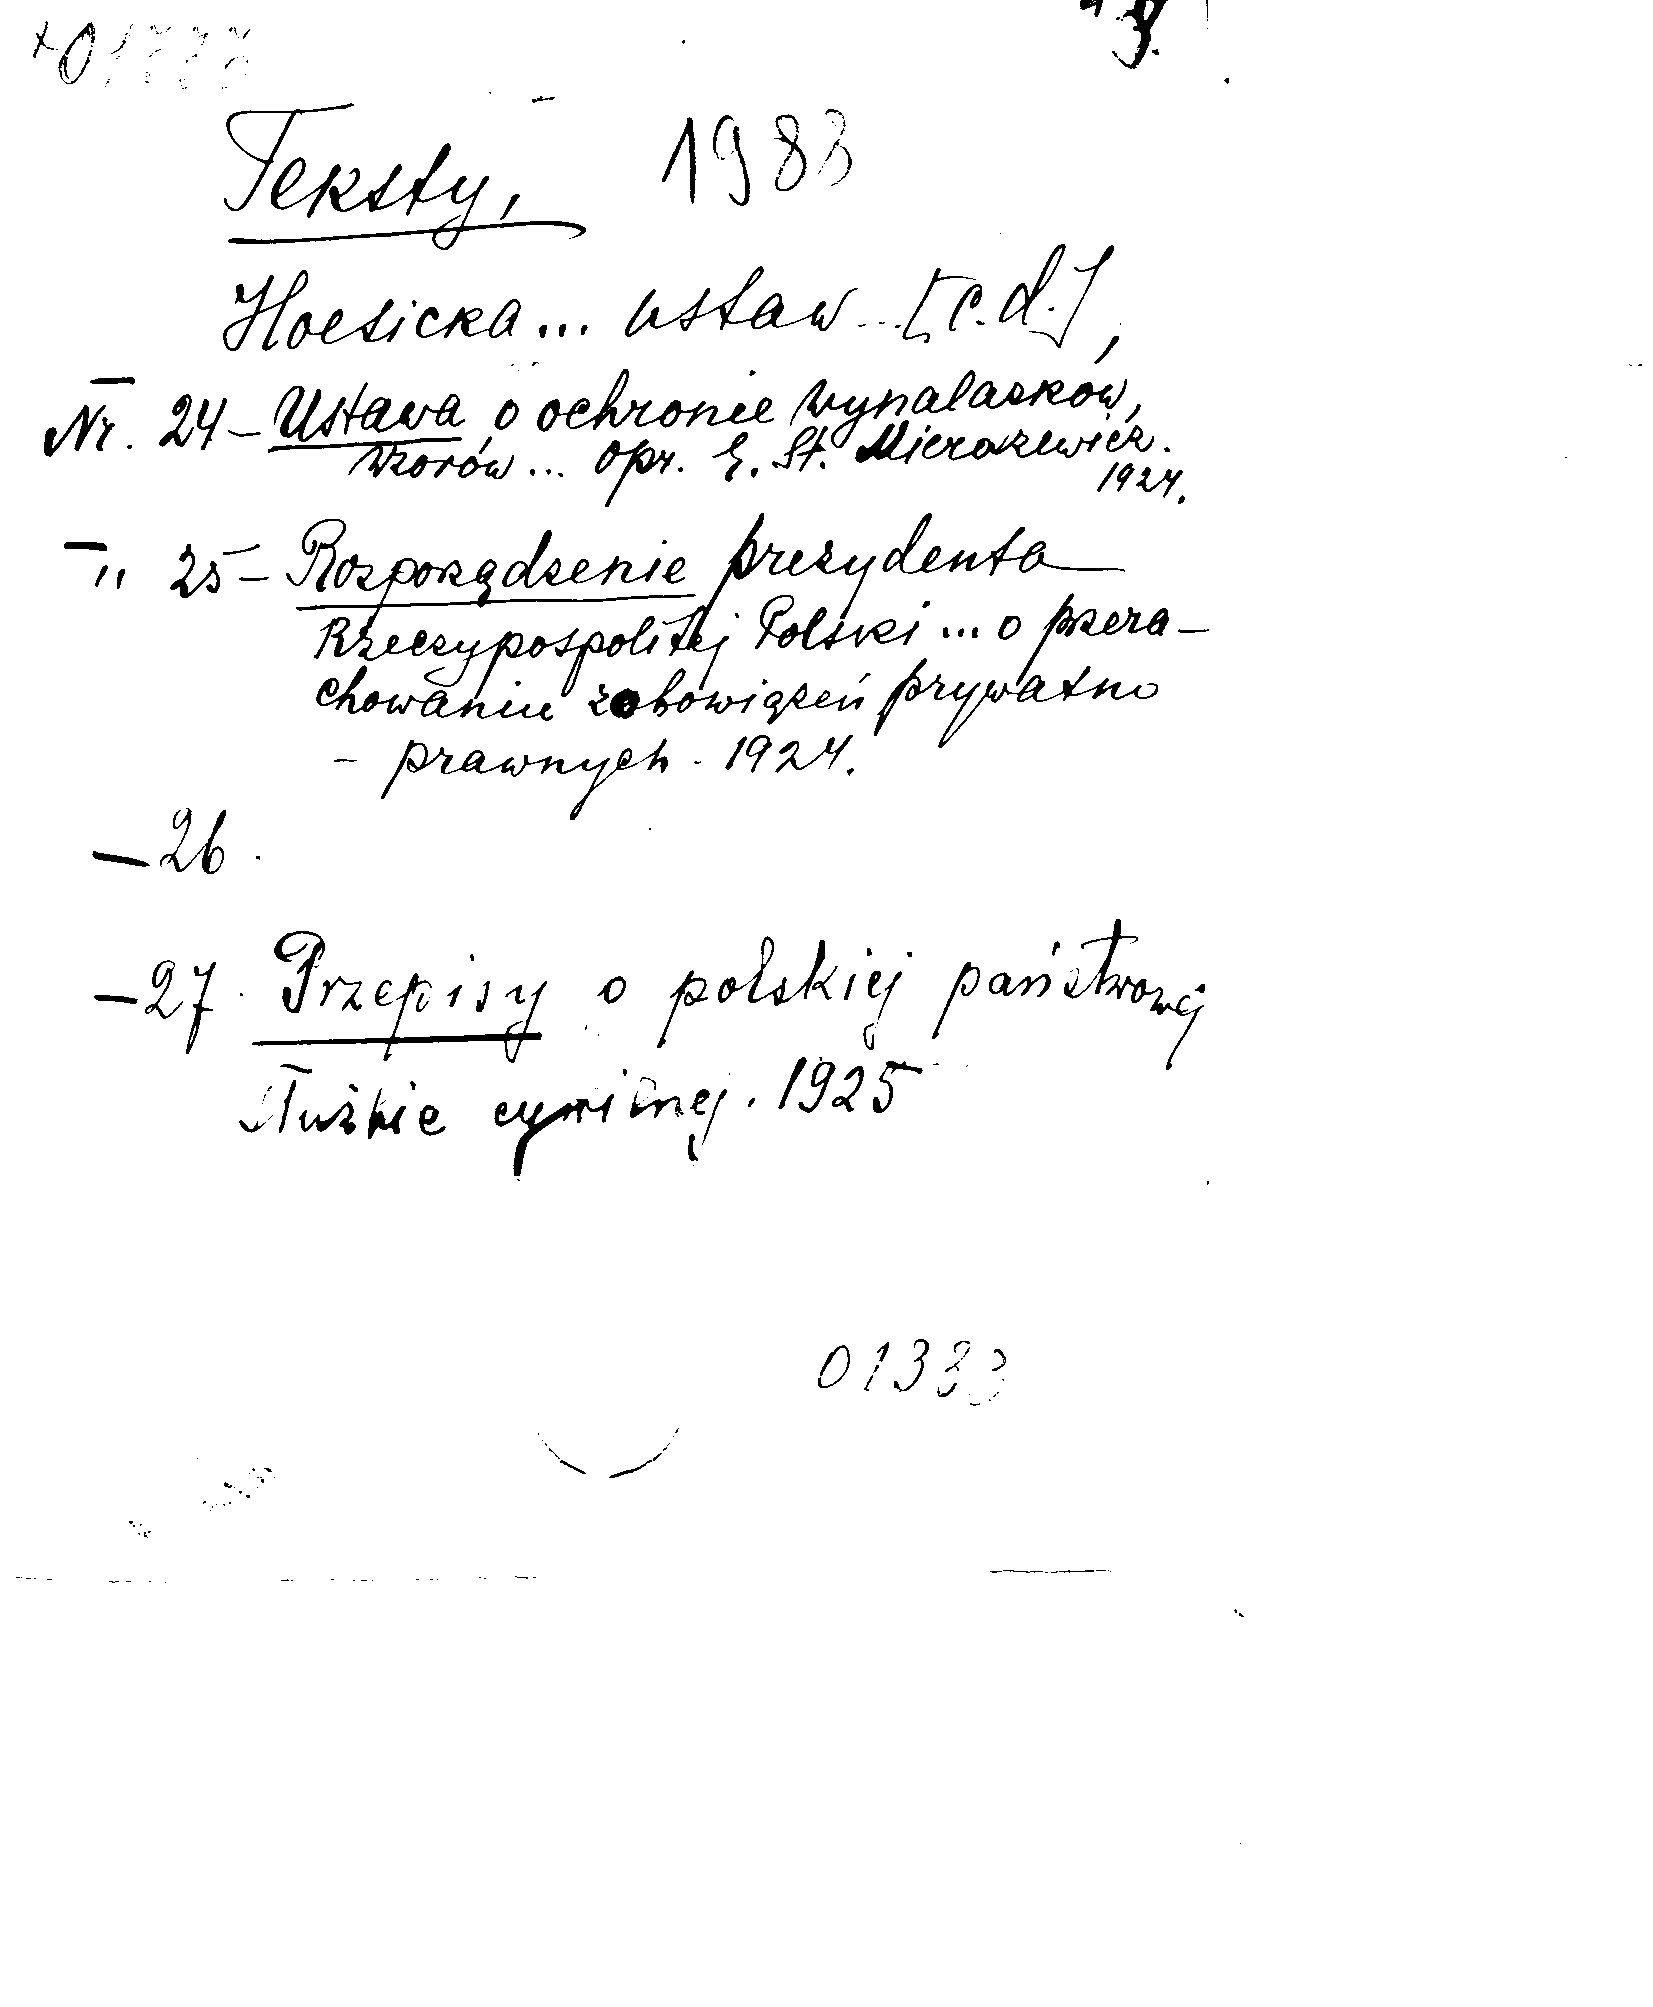 Teksty, 1983
Hoesicka... ustaw...[c.d.],
Nr. 24 - Ustawa o ochronie wynalazków,
wzorów... opr. E. St. Mierazewicz.
1924.
" 25 - Rozporządzenie prezydenta
Rzeczypospolitej Polski... o przera-
chowaniu zobowiązeń prywatno
- prawnych. 1924.
- 26.
- 27. Przepisy o polskiej państwowej
służbie cywilnej. 1925
01333